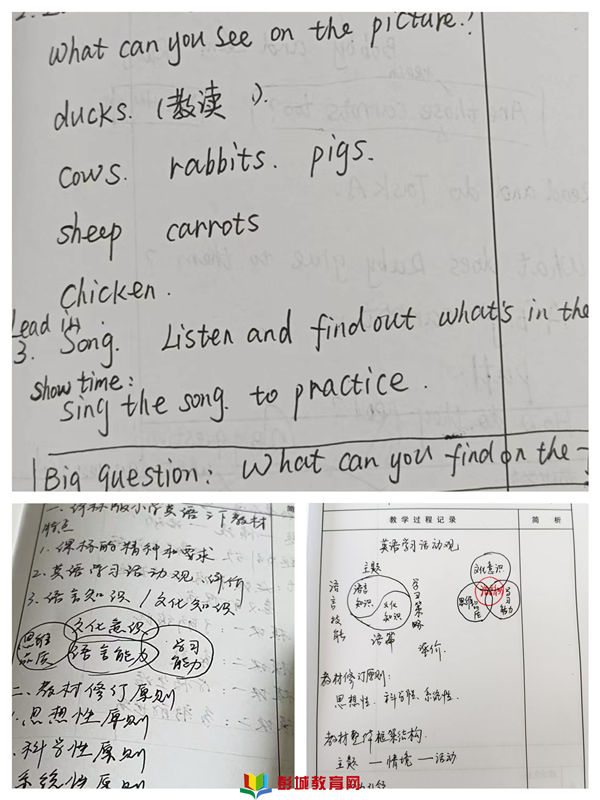 What can you see on the picture?
ducks. (教读).
cows. rabbits. pigs.
sheep carrots
chicken.
Lead in
3. Song. Listen and find out what's in the
show time:
sing the song to practice.
Big question: What can you find on the
教材
特点
1. 课标的精神和要求
2. 英语学习活动观 评价
3. 语言知识 / 文化知识
文化意识
思维品质
语言能力
学习能力
二、教材修订原则
1. 思想性原则
科学性原则
系统性原则
教学过程记录
简析
英语学习活动观
主题
语言技能
语言知识
文化知识
学习策略
语篇
文化意识
思维品质
学习能力
评价
教材修订原则:
思想性、科学性、系统性.
教材整体框架结构.
主题 — 情境 — 活动
彭城教育网